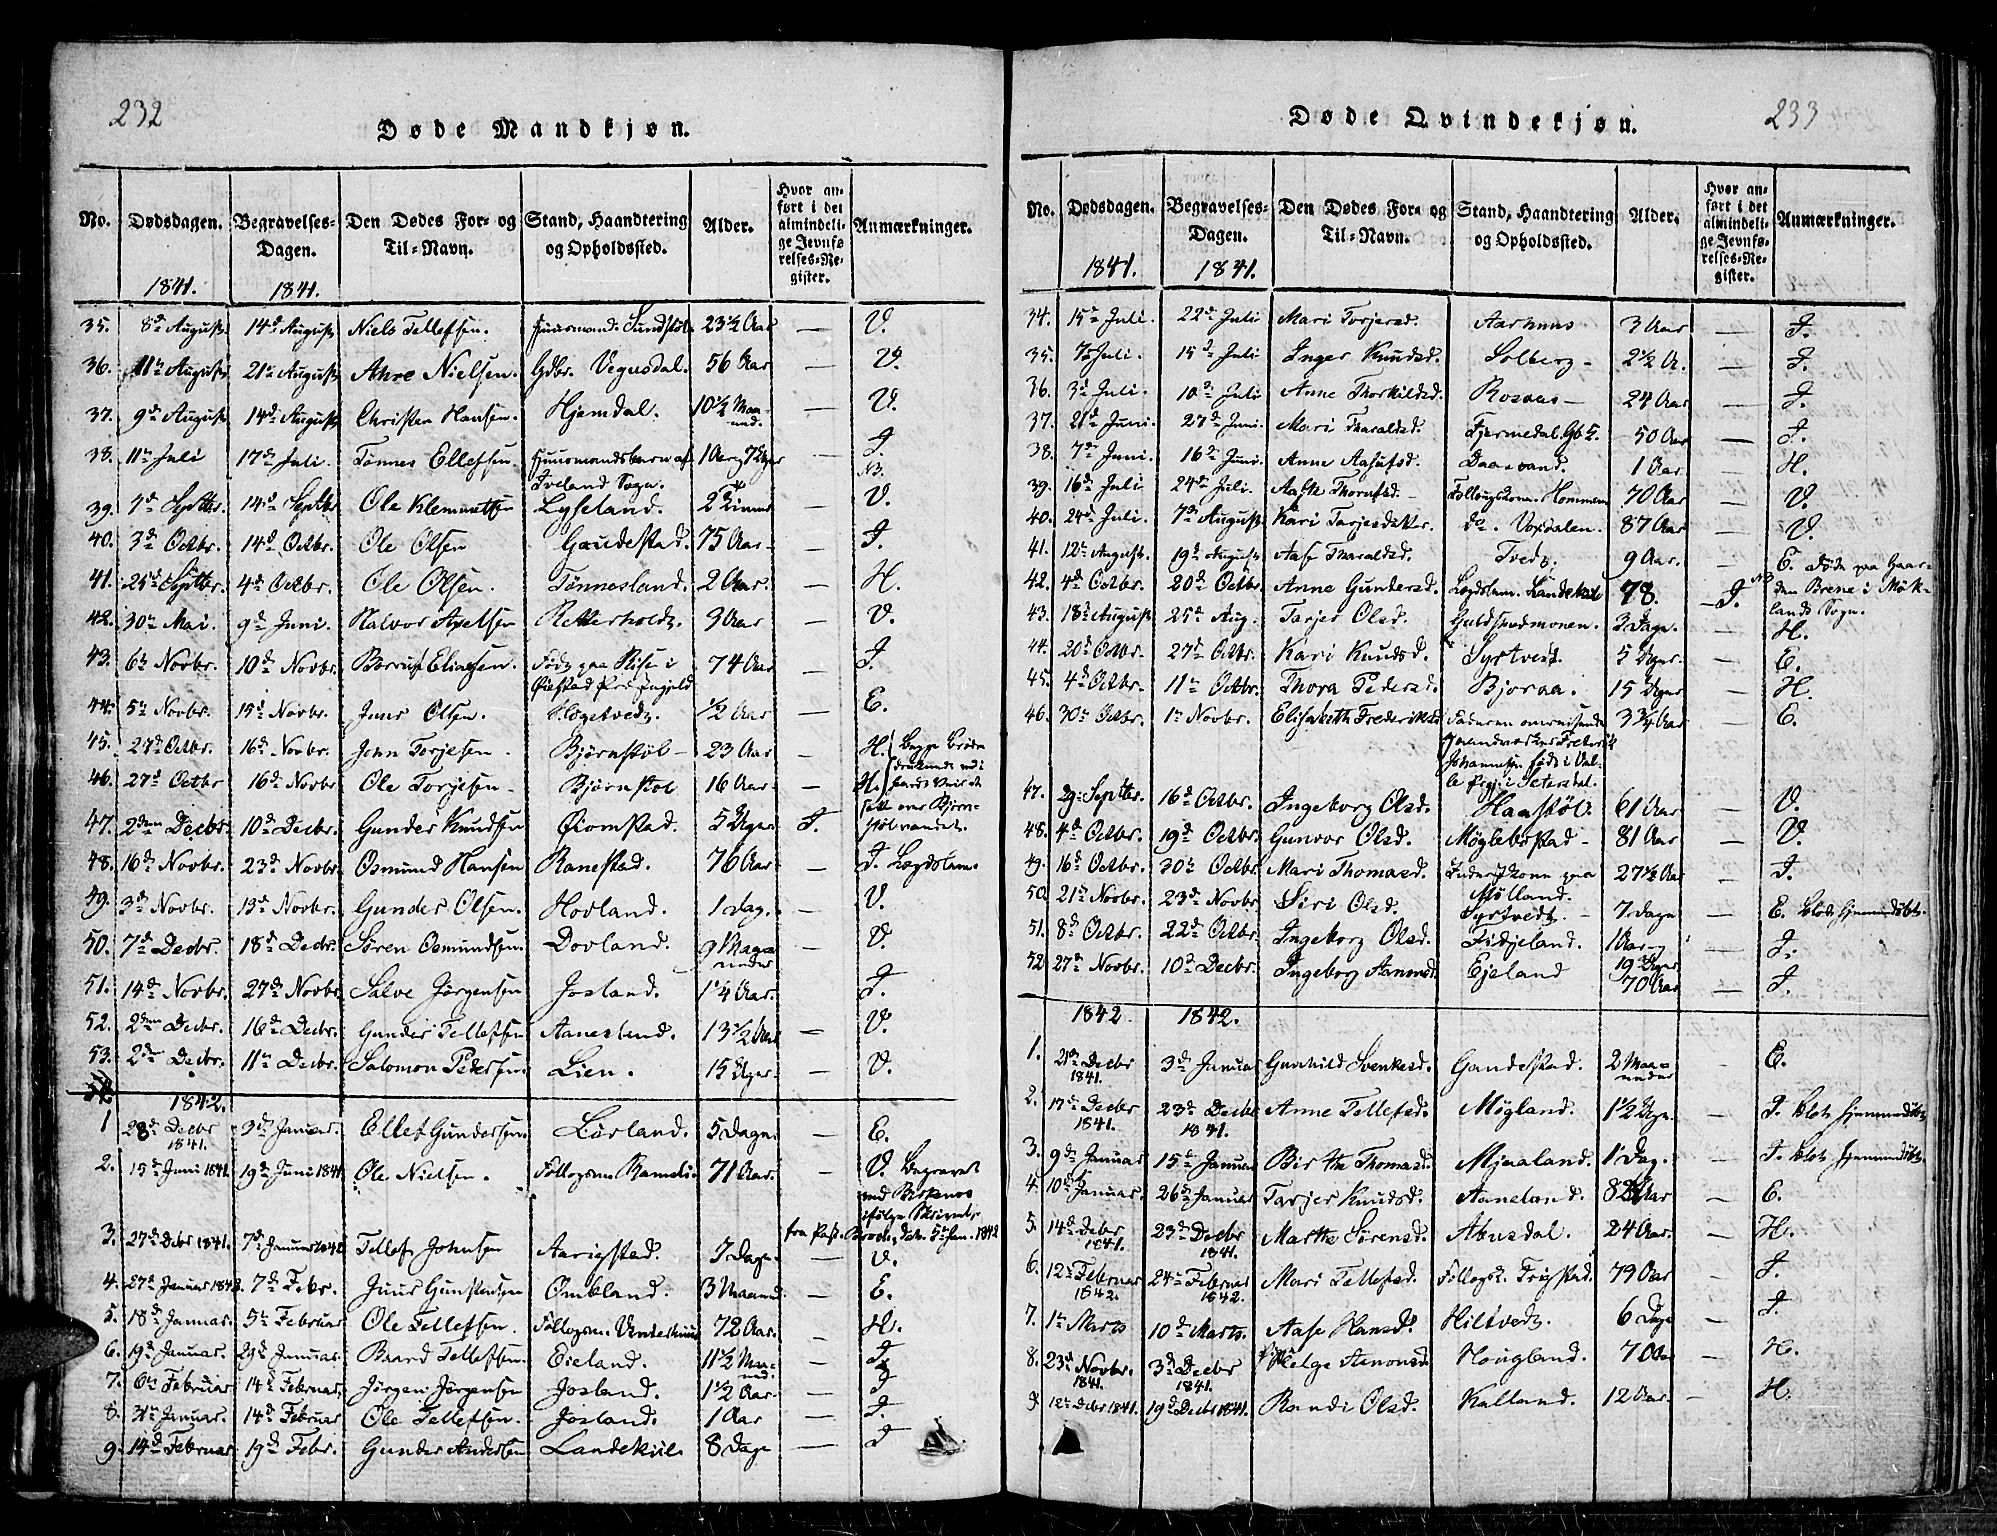 232
Døde Mandkjøn.
No. Dødsdagen. Begravelses-Dagen. Den Dødes For- og Til-Navn. Stand, Haandtering og Opholdssted. Alder. Hvor anført i det almindelige Jevnførelses-Register. Anmærkninger.
1841. 1841.
35. 8de August 14de August Niels Tellefsen. Huusmands Sundstøl 23 1/2 Aar — V.
36. 11te August 21de August Ahre Nielsen. Gdbr. Vegusdal. 56 Aar — V.
37. 9de August 14de August Christen Hansen. Hjemdal. 10 1/2 Maaned. — V.
38. 11te Juli 17de Juli. Tønnes Ellefsen. Huusmandsbarn af Iveland Sogn. 1 Aar 7 Uger — I. NB.
39. 7de Septbr. 14de Septbr Ole Klemmetsen Lyseland. 2 Timer — V.
40. 3de Octbr. 14de Octbr. Ole Olsen Gaudestad. 75 Aar — I.
41. 25de Septbr. 4de Octbr. Ole Olsen. Tønnesland. 2 Aar. — H.
42. 30te Mai. 9de Juni. Halvor Axelsen Retterholt 3 Aar — V.
43. 6te Novbr. 10de Novbr. Elingsen. Født paa Riise i Øiestad Præstegjeld 74 Aar — I.
44. 5te Novbr. 15de Novbr. Juus Olsen. Høgetvedt 1/2 Aar — E.
45. 27de Octbr. 16de Novbr. John Torjesen. Bjørnstøl 23 Aar — H. Begge Brødre druknede ved i
46. 27de Octbr 16de Novbr Ole Torjesen Bjørnstøl 16 Aar — H. satt over Bjørn-
47. 2den Decbr. 10de Decbr. Gunder Knudsen Øiomstad. 5 Uger I. støl vandet.
48. 16de Novbr. 23de Novbr. Osmund Hansen Ranestad. 76 Aar — I. Lægdslem.
49. 3de Novbr. 13de Novbr. Gunder Olsen. Hovland. 1 Dag. — V.
50. 7de Decbr. 18de Decbr. Søren Osmundsen. Dovland. 9 Maaneder — V.
51. 14de Novbr. 27de Novbr. Salve Jørgensen Josland. 1 1/4 Aar. — I.
52. 2den Decbr. 16de Decbr. Gunder Tellefsen Aanesland. 13 1/2 Aar — V.
53. 2den Decbr. 11te Decbr. Salomon Pedersen Lien. 15 Uger — V.
1842.
1 28de Decbr 1841. 3de Januar. Ellef Gundersen. Lørland. 5 Dage. — E.
2. 15de Juni 1841. 19de Juni 1841 Ole Nielsen. Føllogsm. 71 Aar. — V. Begravet ved Birkenes ifølge Skrivelse
fra Past. 1842
3. 27de Decbr 1841. 7de Januar 1842 Tellef Johnsen Aarigstad. 7 Dage — V.
4. 27de Januar 1842. 7de Febr. Juus Gunstensen Omkland. 3 Maaned. — E.
5. 18de Januar. 5te Februar Ole Tellefsen. Føllogsm. 72 Aar. — H.
6. 19de Januar. 29de Januar Baard Tellefsen. Eieland. 11 1/2 Maaned. — I.
7. 6te Februar 14de Februar. Jørgen Jørgensen Josland. 1 1/2 Aar. — I
8. 31te Januar. 14de Februar Ole Tellefsen. Josland. 1 Aar — I.
9. 14de Februar 19de Febr. Gunder Andersen Landekiil. 8 Dage — I
233
Døde Qvindekjøn.
No. Dødsdagen. Begravelses-Dagen. Den Dødes For- og Til-Navn. Stand, Haandtering og Opholdssted. Alder. Hvor anført i det almindelige Jevnførelses-Register. Anmærkninger.
1841. 1841.
34. 15de Juli. 22de Juli Mari Torjersd. Aarhuus 3 Aar — I.
35. 7de Juli. 15de Juli Inger Knudsd. Solberg 2 1/2 A. — I.
36. 3de Juli. 10de Juli Anne Thorkildsd. Rosaas 24 Aar — I.
37. 21de Juni. 27de Juni. Mari Tharaldsd. Fjermedal. 50 Aar — I.
38. 7de Juni. 16de Juni. Anne Aasulfsd. Daasvand. 1 Aar — H.
39. 16de Juli 24de Juli. Aaste Thorufsd. Føllougskone. Hommen 70 Aar — V.
40. 24de Juli. 7de August Kari Tarjesdatter. do. Voxdalen. 87 Aar — V.
41. 12te August. 19de August Aase Tharaldsd. Tvedt. 9 Aar. — E. Døde paa Gaar-
42. 4de Octbr. 20de Octbr. Anne Gundersd. Lægdslem. Landekiil 78. — I. NB den Brene i Møk-
43. 18de August 25de Aug. Tarjer Olsd. Guldsmedmonen. 3 Dage. lands Sogn. H.
44. 20de Octbr. 27de Octbr. Kari Knudsd. Syrtvedt. 5 Uger. — E.
45. 4de Octbr. 11te Octbr. Thora Pedersd. Bjoraa. 15 Uger — H.
46. 30te Octbr. 1te Novbr. Elisabeth Frederiksd Faderen omreisende Frederik Johannesen født i Valle Pgj. i Setersdal. 3 3/4 Aar — E.
47. 29. Septbr. 16de Octbr. Ingeborg Olsd. Haastøl. 61 Aar — V.
48. 4de Octbr. 19de Octbr. Gunvor Olsd. Møglebostad 81 Aar — V.
49. 16de Octbr. 30te Octbr. Mari Thomasd. Inderstkone paa Mølland. 27 1/2 Aar — I.
50. 21de Novbr. 23de Novbr Siri Olsd. Syrtvedt 7 Dage — E. blot hjemmedøbt.
51. 8de Octbr. 22de Octbr. Ingeborg Olsd. Fidjeland. 1 Aar 19 Uger. — I.
52 27de Novbr. 10de Decbr. Ingeborg Aanonsd. Ejeland 70 Aar — I.
1842 1842.
1. 21de Decbr 1841. 3de Januar Gunhild Svenkesd. Gaudestad. 2 Maaneder — E.
2. 17de Decbr 1841. 23de Decbr 1841. Anne Tellefsd. Møgland. 1 1/2 Uge. — I. blot hjemmedøbt
3. 9de Januar 15de Januar Birthe Thomasd. Mjaaland. 1 Dag. — I. blot hjemmedøbt.
4. 10de Januar. 26de Januar Tarjer Knudsd. Aaneland. 82 Aar — E.
5. 14de Decbr 1841. 23de Decbr 1841. Marthe Sørensd. Abusdal. 24 Aar. — H.
6. 12te Februar 1842. 24de Februar 1842. Mari Tellefsd. Føllogsk. Frigstad. 79 Aar — I.
7. 1te Marts 10de Marts. Aase Hansd. Hiltvedt. 6 Dage — I
8. 23de Novbr. 1841. 3de Decbr 1841. Helge Aanonsd. Hougland. 7 Aar — H.
9 12te Decbr 1841. 19de Decbr 1841. Randi Olsd. Kalland. 12 Aar. — H.